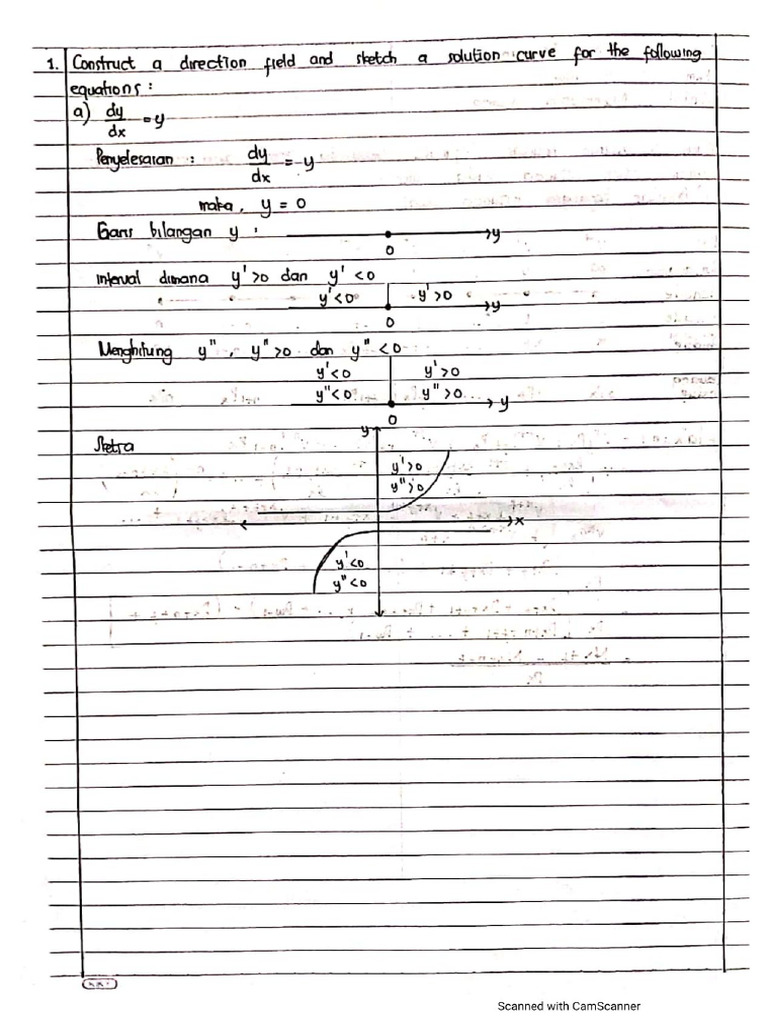 1. Construct a direction field and sketch a solution curve for the following
equations :
a) dy/dx = y
Penyelesaian : dy/dx = y
maka, y = 0
Garis bilangan y :
y
0
Interval dimana y' >0 dan y' <0
y' <0 y' >0
y
0
Menghitung y", y" >0 dan y" <0
y' <0 y' >0
y" <0 y" >0
y
0
y
Sketsa
y' >0
y" >0
x
y' <0
y" <0
Scanned with CamScanner